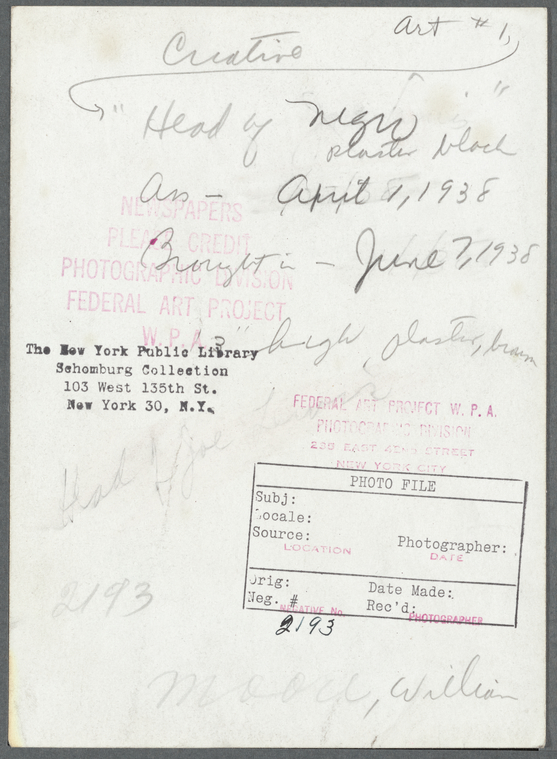 Art #1,
Creative
"Head of Negro"
plaster block
Ass - April 1, 1938
NEWSPAPERS
PLEASE CREDIT
PHOTOGRAPHIC DIVISION
FEDERAL ART PROJECT
W.P.A.
Brought in - June 7, 1938
3" high, plaster, brown
The New York Public Library
Schomburg Collection
103 West 135th St.
New York 30, N.Y.
FEDERAL ART PROJECT W. P. A.
PHOTOGRAPHIC DIVISION
235 EAST 42ND STREET
NEW YORK CITY
Head of Joe Lewis
PHOTO FILE
Subj:
Locale:
Source:
LOCATION
Photographer:
DATE
Orig:
Date Made:
Neg. #
NEGATIVE No.
Rec'd:
PHOTOGRAPHER
2193
2193
Moore, William